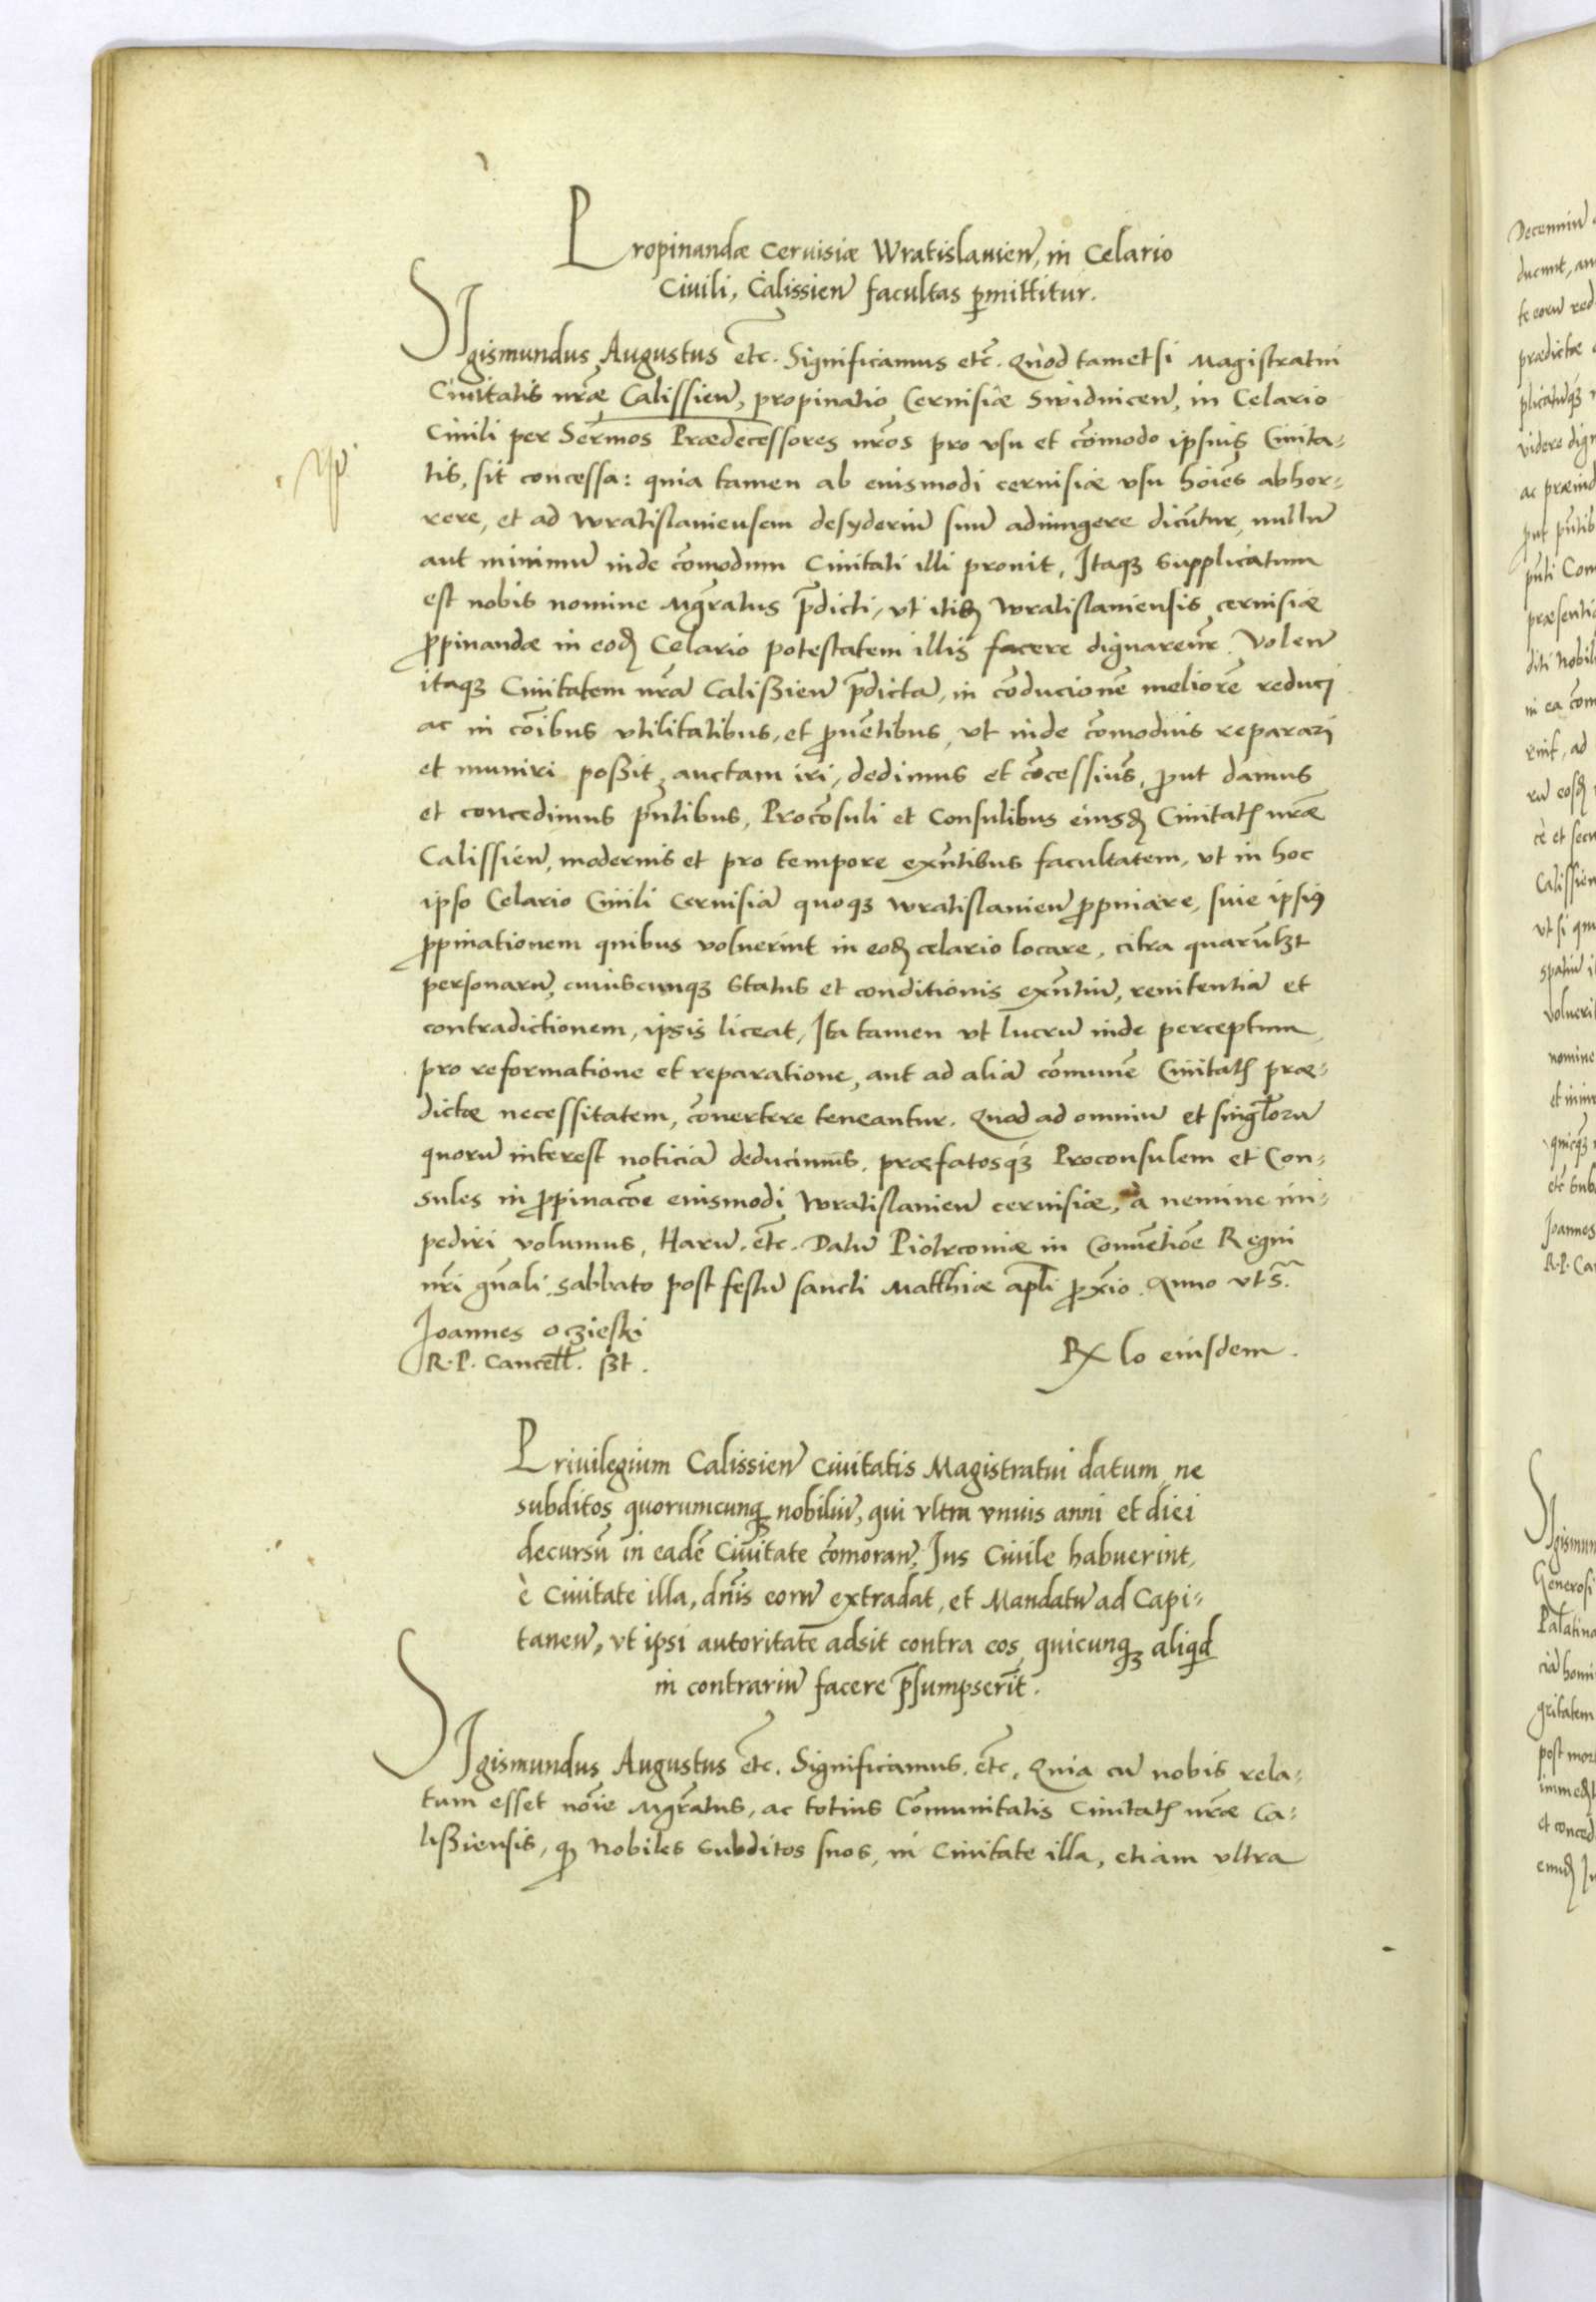 Propinandæ Ceruisiæ Wratislauien̄, in Celario
Ciuili, Calissien̄ facultas p̱mittitur.
SIgismundus Augustus etc̄. Significamus etc̄. Quòd tametsi Magistratui
Ciuitatis nr̄æ Calissien̄, propinatio Ceruisiæ Swidnicen̄, in Celario
Ciuili per Serm̄os Prædecessores nr̄os pro vsu et cōmodo ipsius Ciuita-
tis, sit concessa: quia tamen ab eiusmodi ceruisiæ vsu hoīes abhor-
rere, et ad Wratislauiensem desyderiū suū adiungere dicūtur, nullū
aut minimū inde cōmodum Ciuitati illi prouit, Itaqꝫ supplicatum
est nobis nomine Mgr̄atus p̄dicti, vt itidꝫ Wratislauiensis ceruisiæ
ꝓpinandæ in eodꝫ Celario potestatem illis facere dignaremr̄. Volen̄
itaqꝫ Ciuitatem nr̄ā Calißien̄ p̄dictā, in cōdicionē meliorē reduci
ac in cōibus vtilitatibus, et ꝓuētibus, vt inde cōmodius reparari
et muniri poßit, auctam iri, dedimus et cōcessim̄s, ꝓut damus
et concedimus pn̄tibus, Procōsuli et Consulibus eiusdꝫ Ciuitatꝭ nr̄æ
Calissien̄, modernis et pro tempore exn̄tibus facultatem, vt in hoc
ipso Celario Ciuili ceruisiā quoqꝫ Wratislauien̄ ꝓpinare, siue ipsiꝰ
ꝓpinationem quibus voluerint in eodꝫ celario locare, citra quarūlꝫt
personarū, cuiuscunqꝫ status et conditionis exn̄tiū, renitentiā et
contradictionem, ipsis liceat, Ita tamen vt lucrū inde perceptum
pro reformatione et reparatione, aut ad aliā cōmunē Ciuitatꝭ præ-
dictæ necessitatem, cōuertere teneantur. Quod ad omniū et singl̄orū
quorū interest noticiā deducimus, præfatosqꝫ Proconsulem et Con-
sules in ꝓpinac̄oe eiusmodi Wratislauien̄ ceruisiæ, a nemine im-
pediri volumus, Harū. etc̄. Datū Piotrcouiæ in Conuētiōe Regni
nr̄i gn̄ali, sabbato post festū sancti Matthiæ apl̄i ꝓx̄io. Anno vt s̄.
Joannes Oczieski
R. P. Cancell̄. ßt.
Rx lo eiusdem.
Priuilegium Calissien̄ ciuitatis Magistratui datum, ne
subditos quorumcunqꝫ nobiliū, qui vltra vnius anni et diei
decursū in eadē Ciuitate cōmoran̄, Ius Ciuile habuerint,
è Ciuitate illa, dn̄is eorū extradat, et Mandatū ad Capi-
taneū, vt ipsi autoritatē adsit contra eos, quicunqꝫ aliqd
in contrariū facere p̄sumpserīt.
SIgismundus Augustus etc̄. Significamus. etc̄. Quia cū nobis rela-
tum esset noīe Mgr̄atus, ac totius Cōmunitatis Ciuitatꝭ nr̄æ Ca-
lißiensis, qꝫ Nobiles subditos suos, in Ciuitate illa, etiam vltra